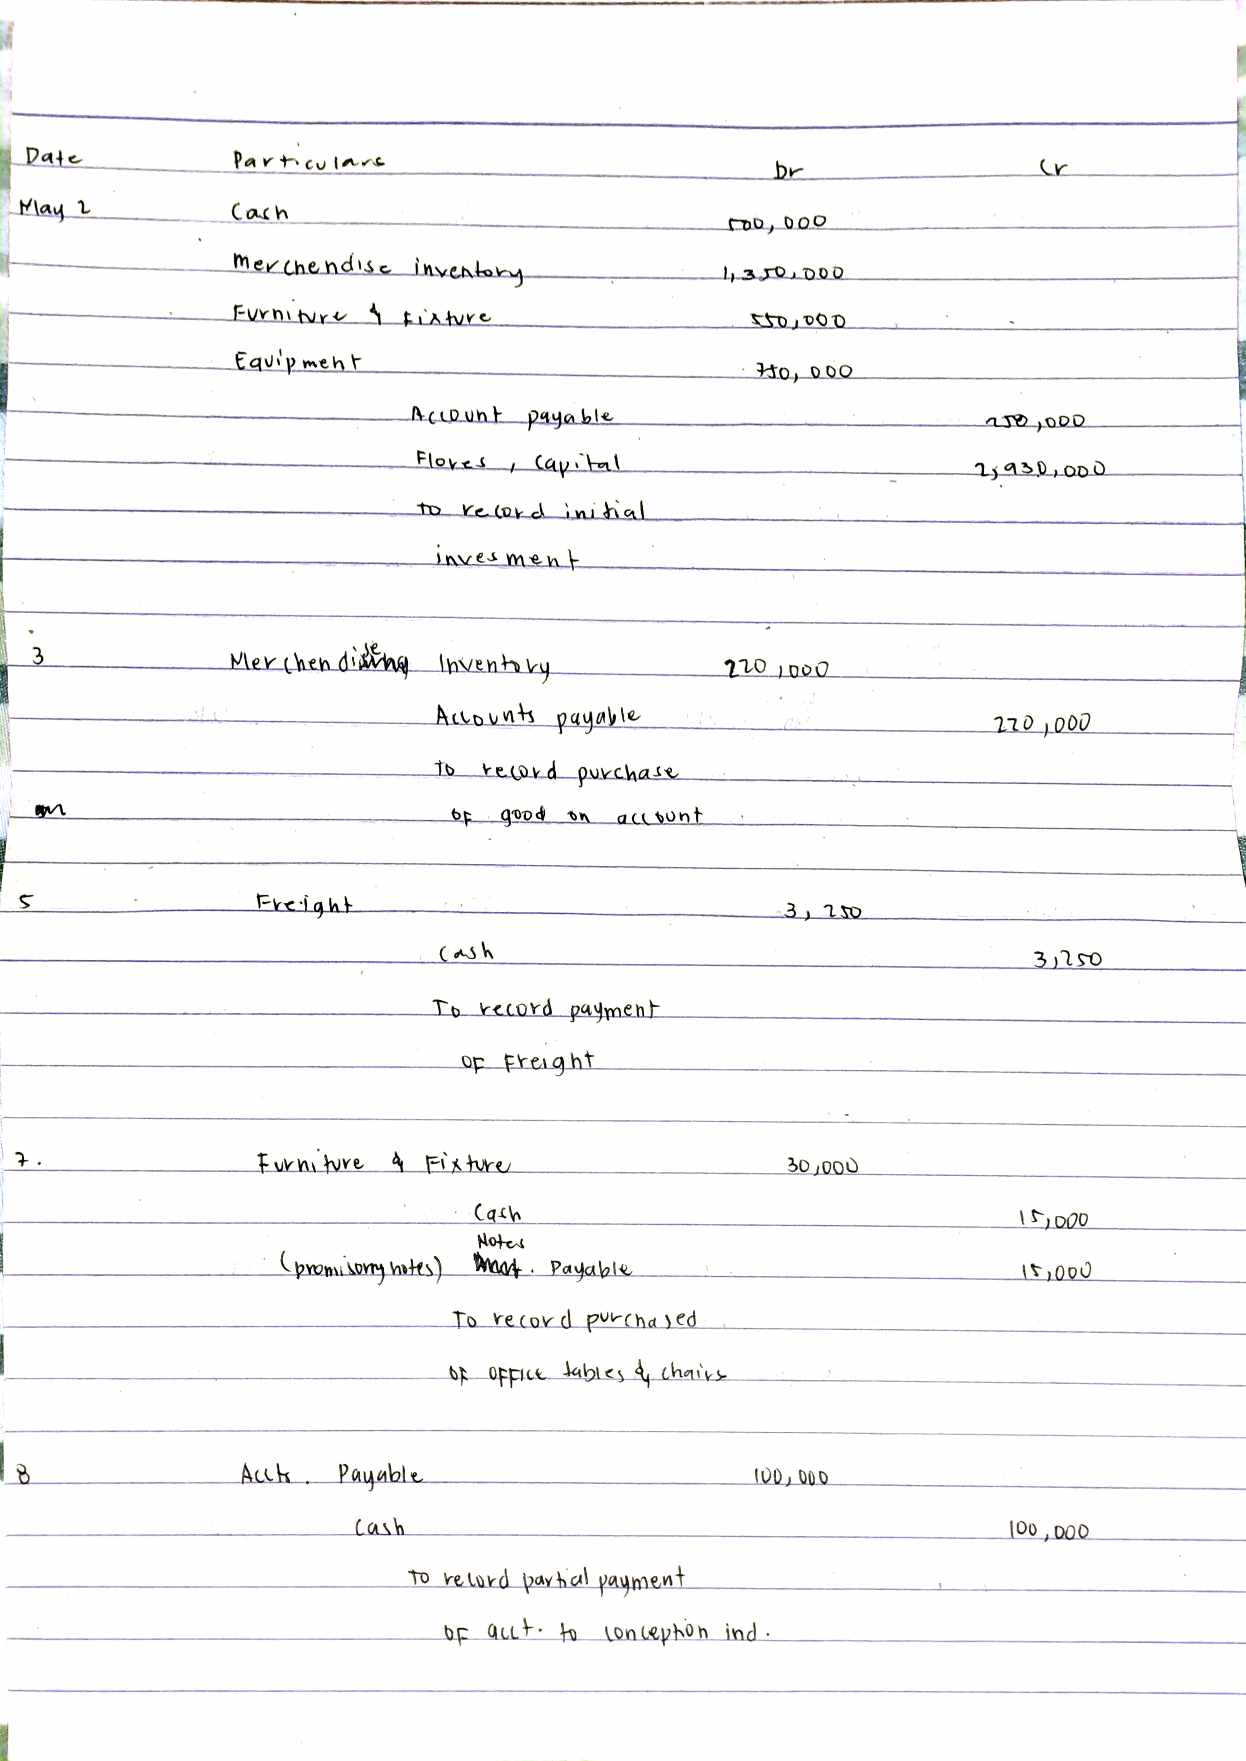 Date Particulars Dr Cr
May 2 Cash 500,000
Merchendise inventory 1,350,000
Furniture & Fixture 550,000
Equipment 750,000
Account payable 250,000
Flores, Capital 2,930,000
to record initial
invesment
3 Merchendise Inventory 220,000
Accounts payable 220,000
to record purchase
of good on account
5 Freight 3,250
Cash 3,250
To record payment
of Freight
7. Furniture & Fixture 30,000
Cash 15,000
Notes
(promisorry notes) Payable 15,000
To record purchased
of office tables & chairs
8 Accts. Payable 100,000
Cash 100,000
To record partial payment
of acct. to conception ind.